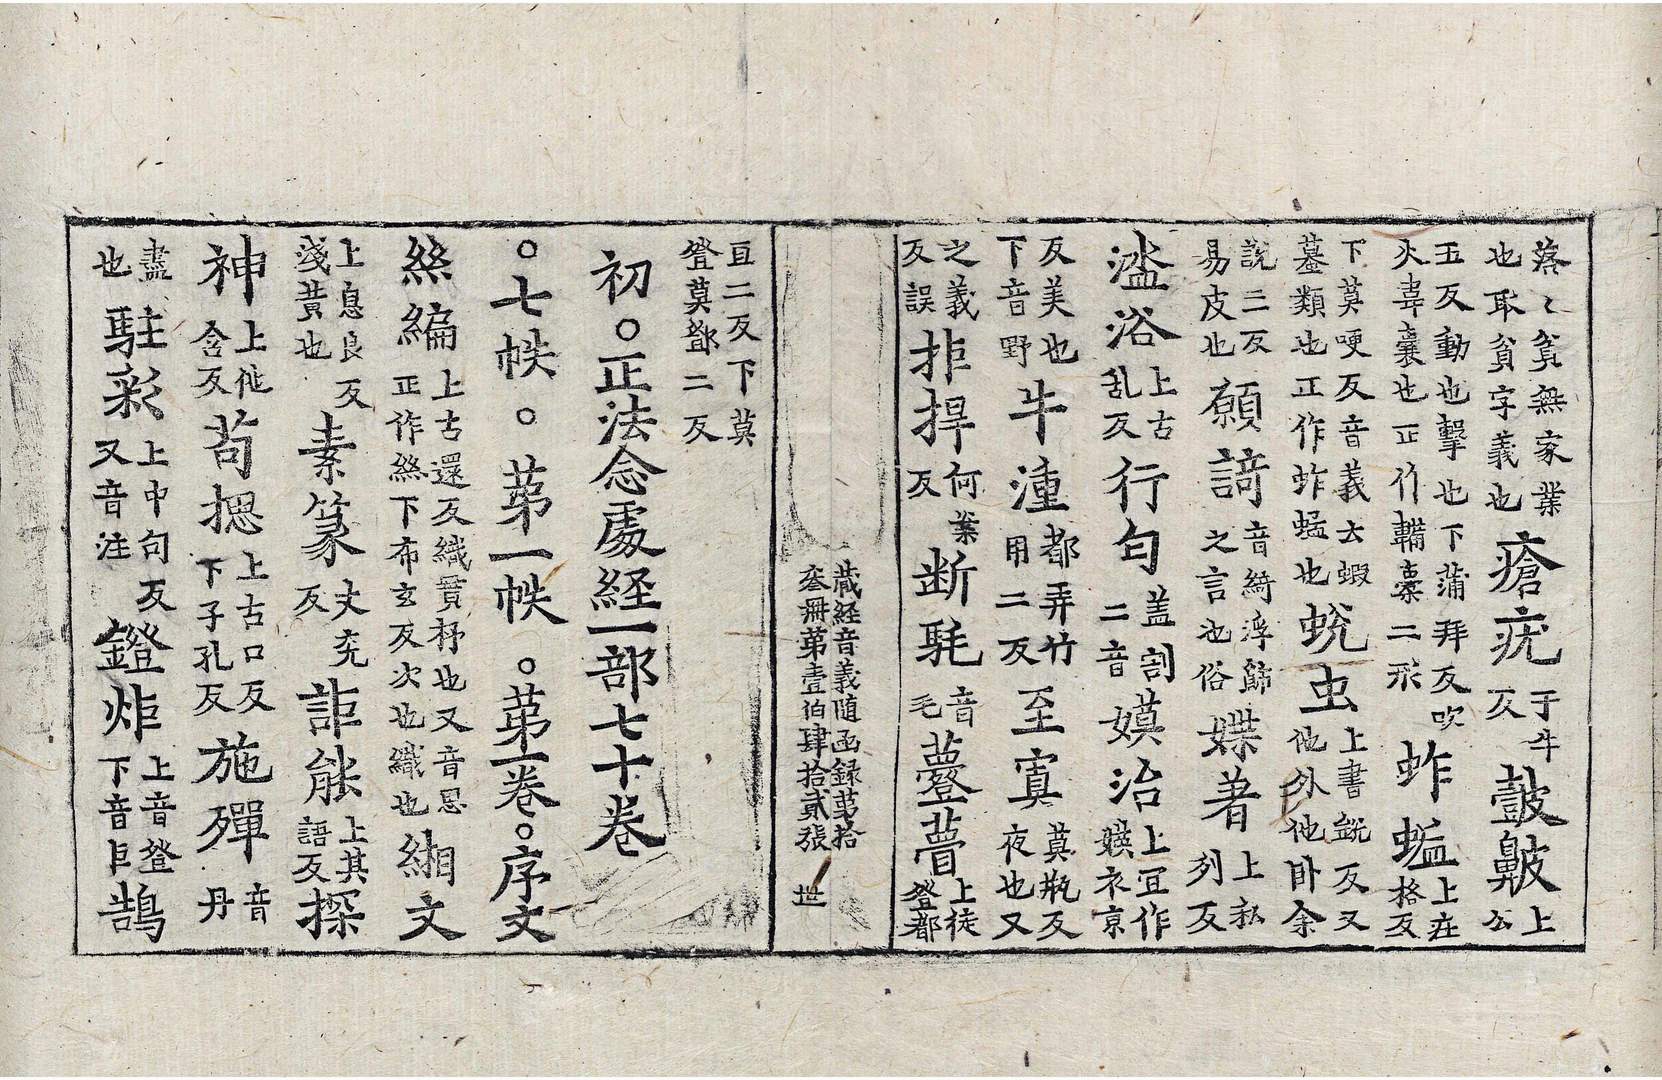 落〻貧無家業
也耴貧字義也瘡疣于牛反皷皾上公
玉反動也擊也下蒲拜反吹
火韋囊也正作韛橐二形蚱蜢上在格反
下莫哽反音義云蝦
蟇類也正作蚱蜢也蛻虫上書銳反又他外他卧余
說二反
易皮也願謌音綺浮飾之言也俗媟著上私列反
濫浴上古乱反行匂盖割二音嫫治上宜作嫫衣京
反美也
下音野牛湩都弄竹用二反至寞莫瓶反夜也又
之義
反誤拒捍何反斷毦音毛薹瞢上徒登都
藏経音義隨函録苐拾
叁冊苐壹伯肆拾貳張　世
亘二反下莫
登莫鄧二反
初○正法念處経一部七十巻
○七帙○苐一帙○苐一巻○序文
絲編上古還反織貫杼也又音思正作絲下布玄反次也織也緗文
上息良反
淺黃也素篆丈兖反詎能上其語反探
神上他含反苟揌上古口反下子孔反施殫音丹
盡
也駐彩上中句反又音注鐙炬上音登下音巨鵠